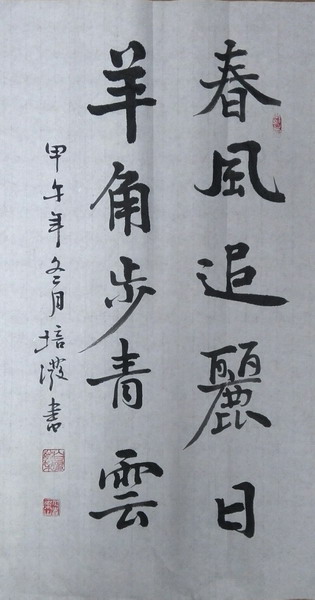 春風追麗日
羊角步青雲
甲午年冬月培潑書